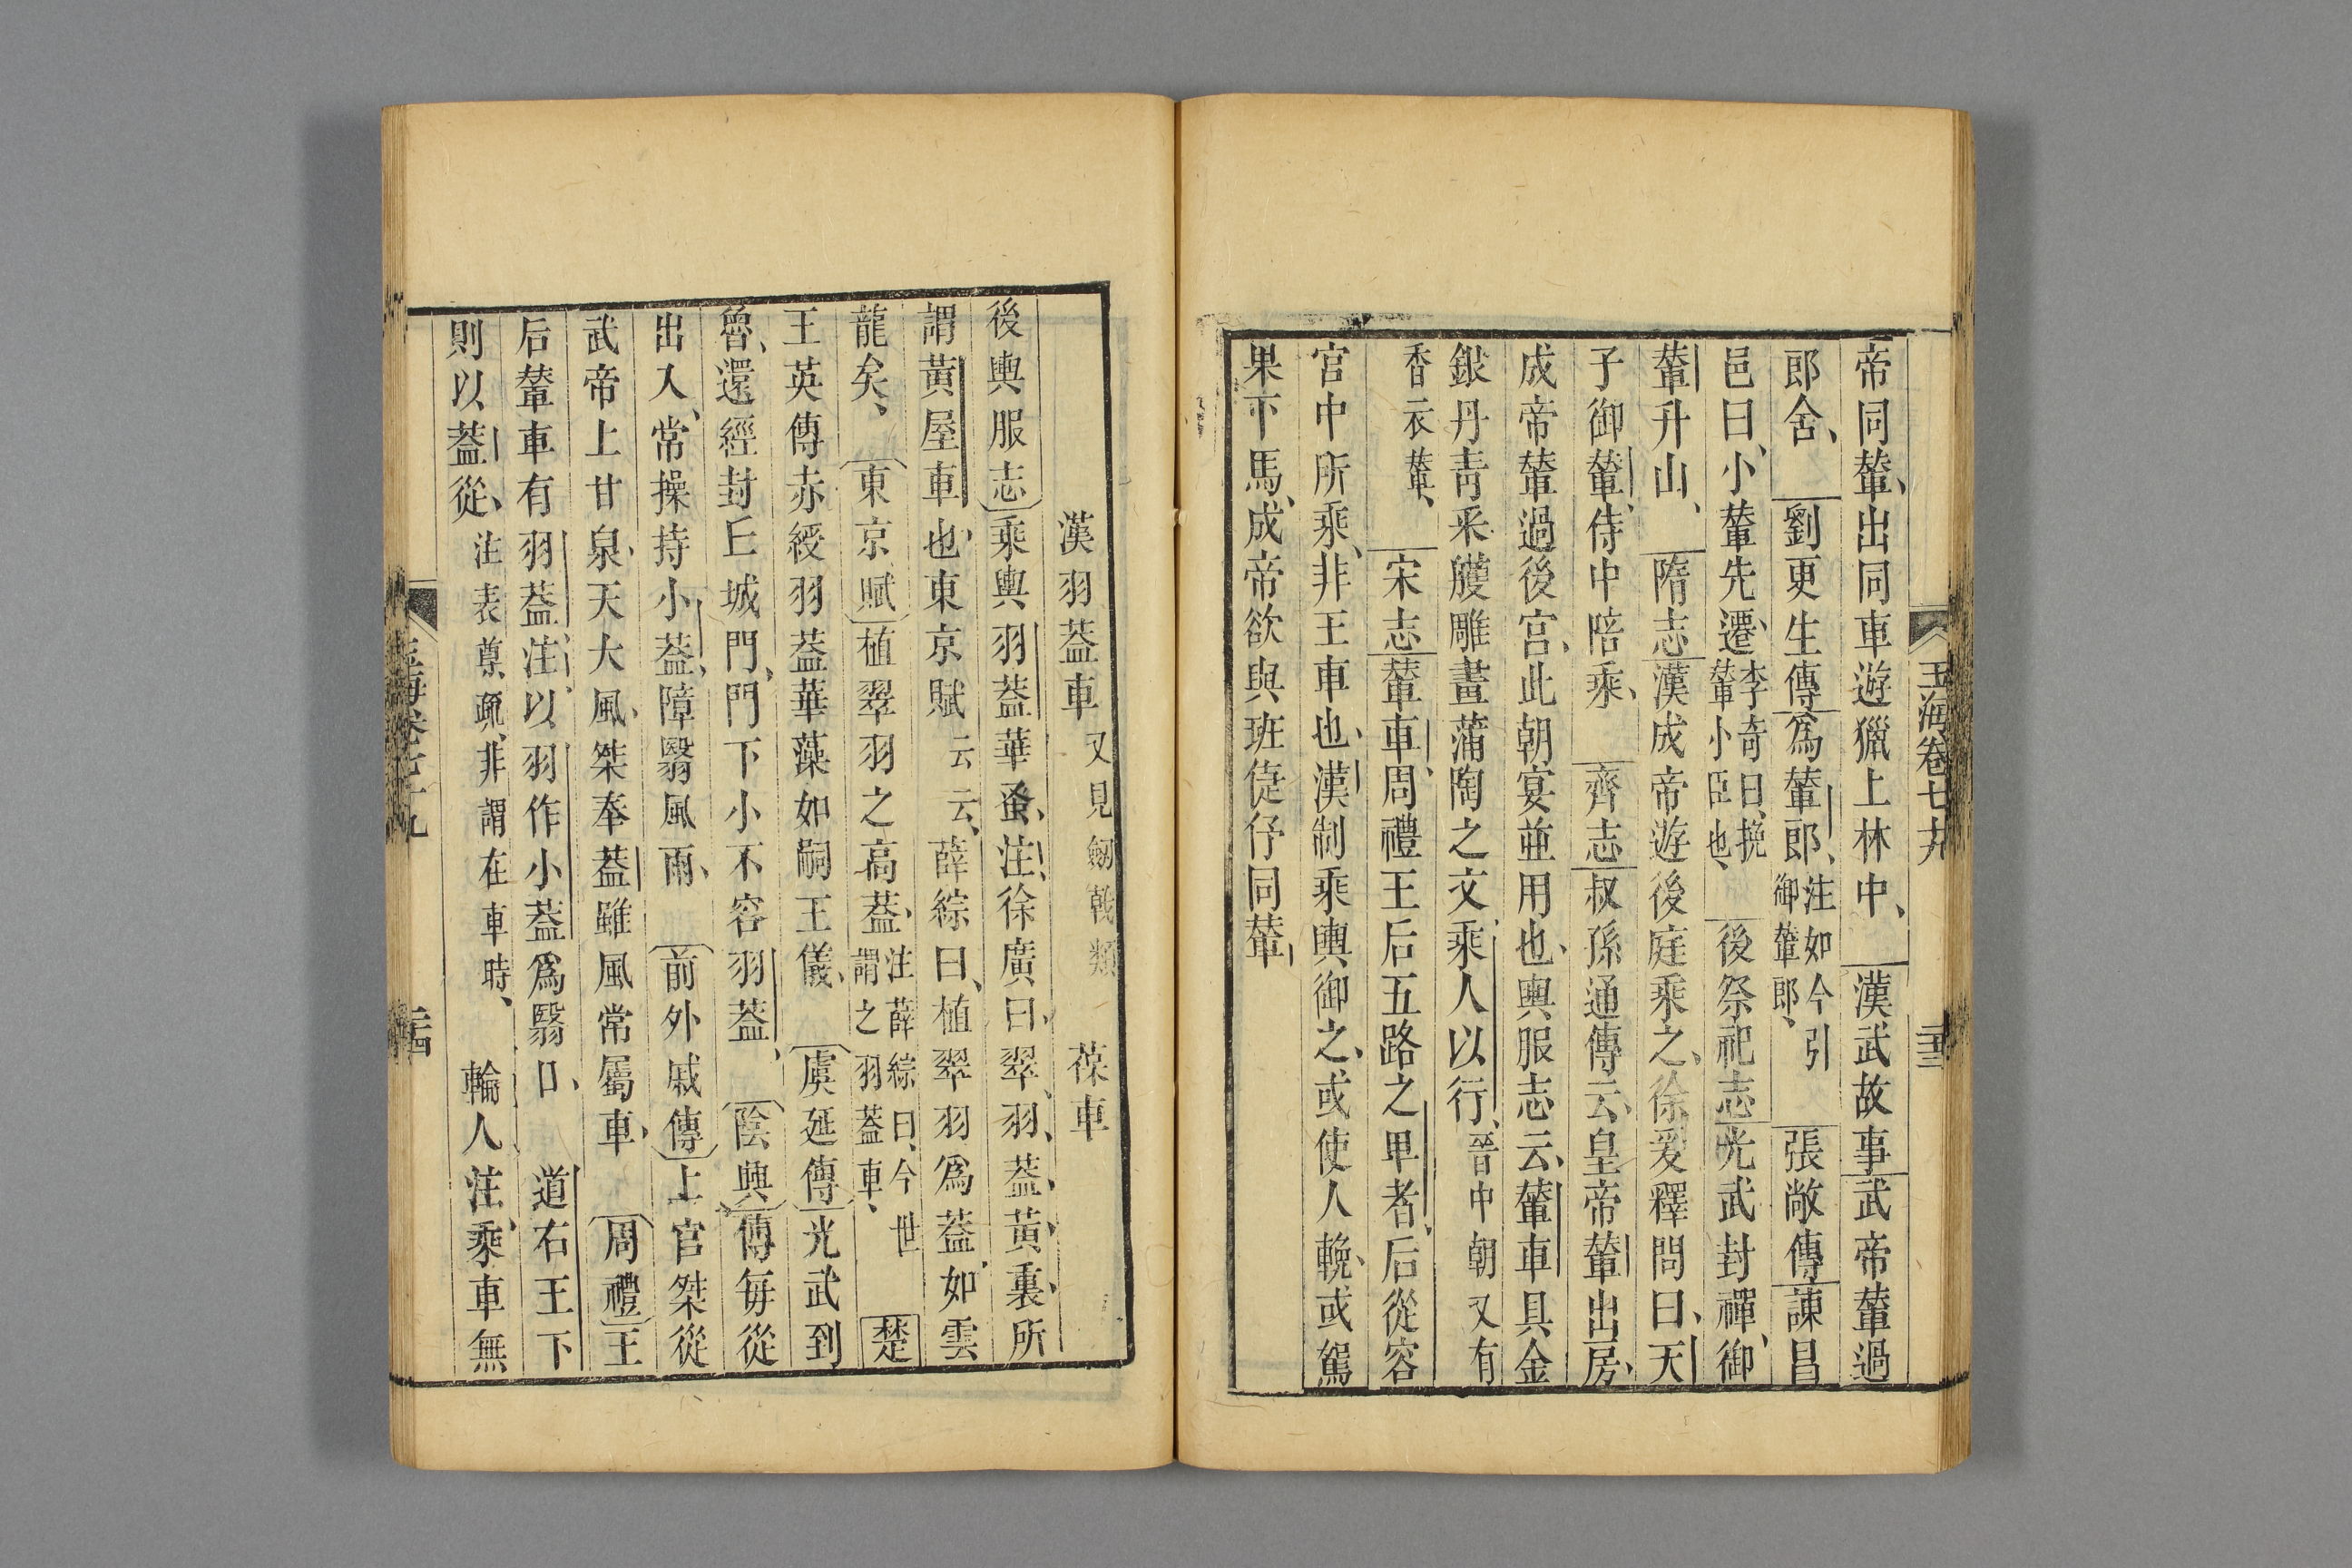 玉海卷七十九 二十三
帝同輦、出同車遊獵上林中、漢武故事武帝輦過
郎舍、劉更生傳爲輦郎、注如今引御輦郎、張敞傳諫昌
邑曰、小輦先遷、李奇曰、挽輦小臣也、後祭祀志光武封禪、御
輦升山、隋志漢成帝遊後庭乘之、徐爰釋問曰、天
子御輦、侍中陪乘、齊志叔孫通傳云、皇帝輦出房、
成帝輦過後宮、此朝宴並用也、輿服志云、輦車具金
銀丹青采雘雕畫蒲陶之文乘人以行、晉中朝又有
香衣輦、宋志輦車、周禮王后五路之卑者、后從容
宮中所乘、非王車也、漢制乘輿御之、或使人輓、或駕
果下馬、成帝欲與班倢伃同輦、
漢羽葢車 又見劔戟類 葆車
後輿服志乘輿羽葢華蚤、注、徐廣曰、翠、羽、葢、黃、裏、所
謂黃屋車也、東京賦云云、薛綜曰、植翠羽爲葢、如雲
龍矣、東京賦植翠羽之高葢、注薛綜曰、今世謂之羽葢車、楚
王英傳赤綬羽葢華藻如嗣王儀、虞延傳光武到
魯、還經封丘城門、門下小不容羽葢、陰興傳每從
出入、常操持小葢、障翳風雨、前外戚傳上官桀從
武帝上甘泉、天大風、桀奉葢雖風常屬車、周禮王
后輦車有羽葢、注、以羽作小葢爲翳日、道右王下
則以葢從、注表尊疏、非謂在車時、輪人注、乘車無
玉海卷七十九 二十四